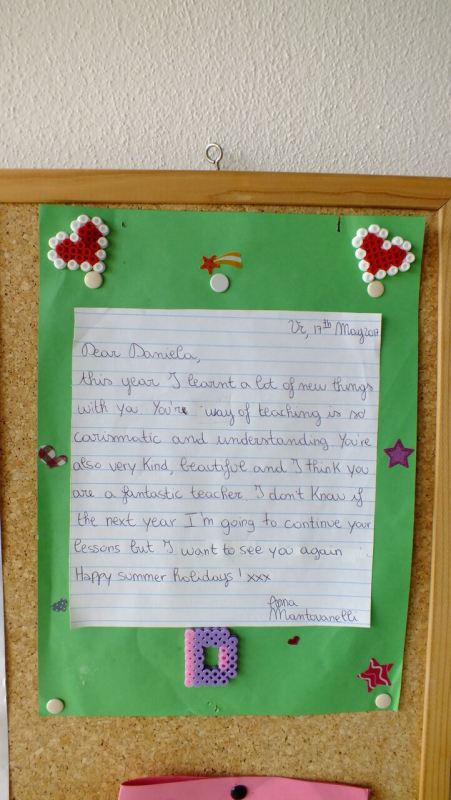 Vr, 17th May 2017
Dear Daniela,
this year I learnt a lot of new things
with you. You're way of teaching is so
carismatic and understanding. You're
also very kind, beautiful and I think you
are a fantastic teacher. I don't know if
the next year I'm going to continue your
lessons but I want to see you again
Happy summer holidays! xxx
Anna
Mantovanelli
D